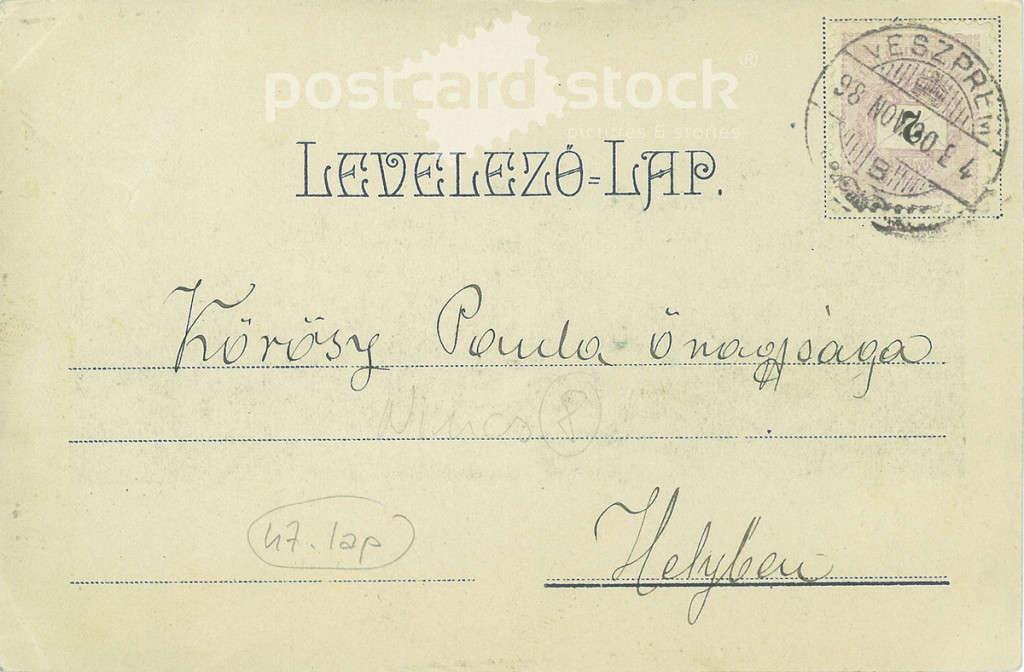 postcard stock®
pictures & stories
LEVELEZŐ=LAP.
VESZPRÉM
98 NOV
2
B
Kőrösy Paula őnagysága
Nincs 8
47. lap
Helyben